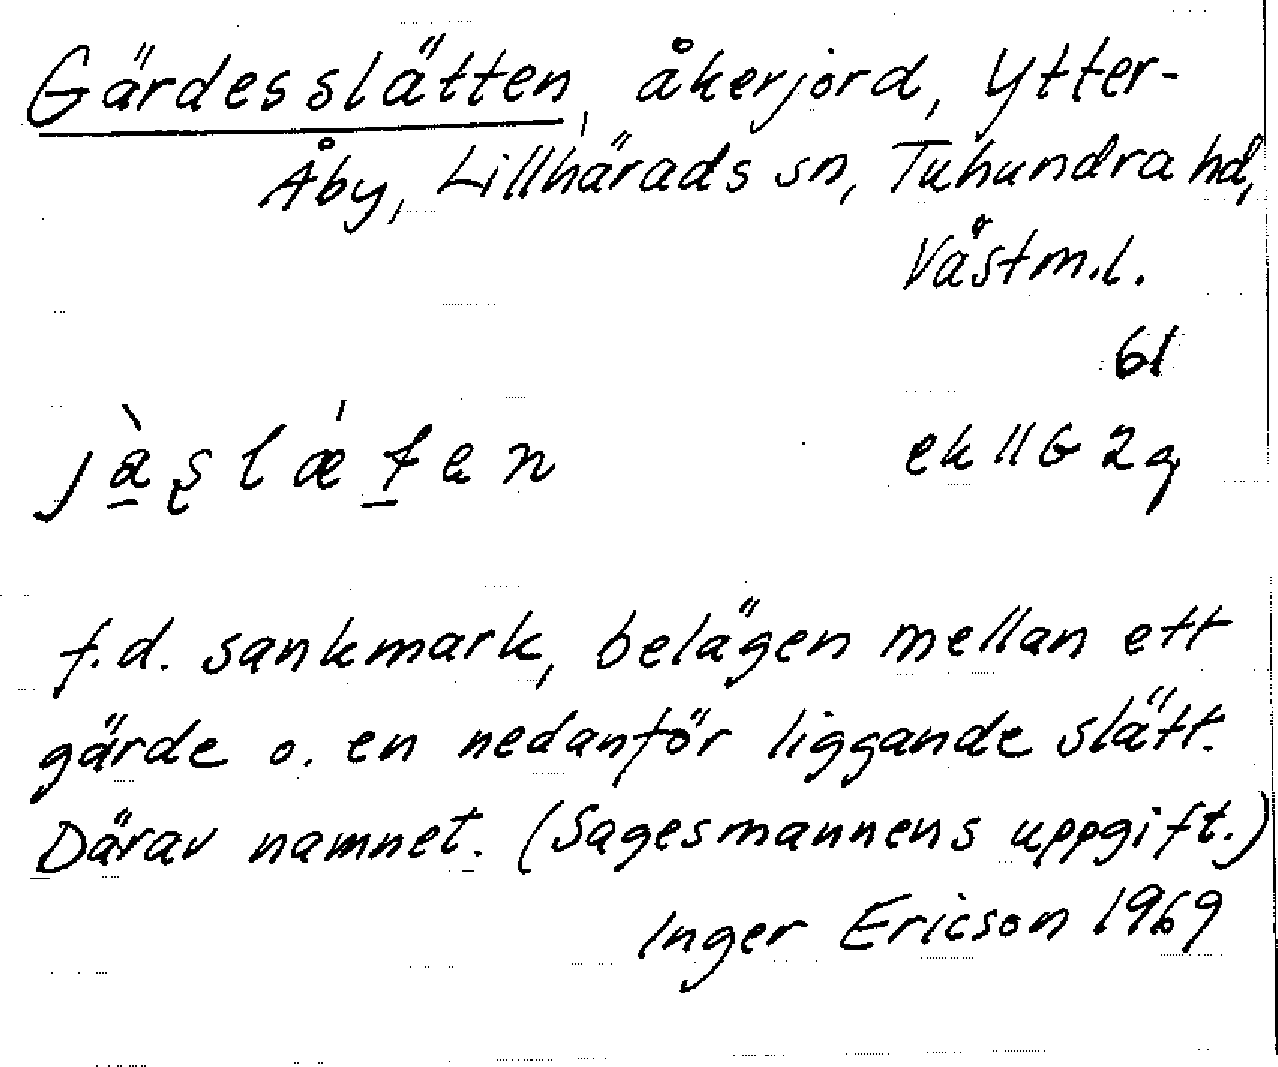 Gärdesslätten, åkerjord, Ytter-
Åby, Lillhärads sn, Tuhundra hd,
Västm.l.
61
ek 11 G 2g
f.d. sankmark, belägen mellan ett
gärde o. en nedanför liggande slätt.
Därav namnet. (Sagesmannens uppgift.)
Inger Ericson 1969